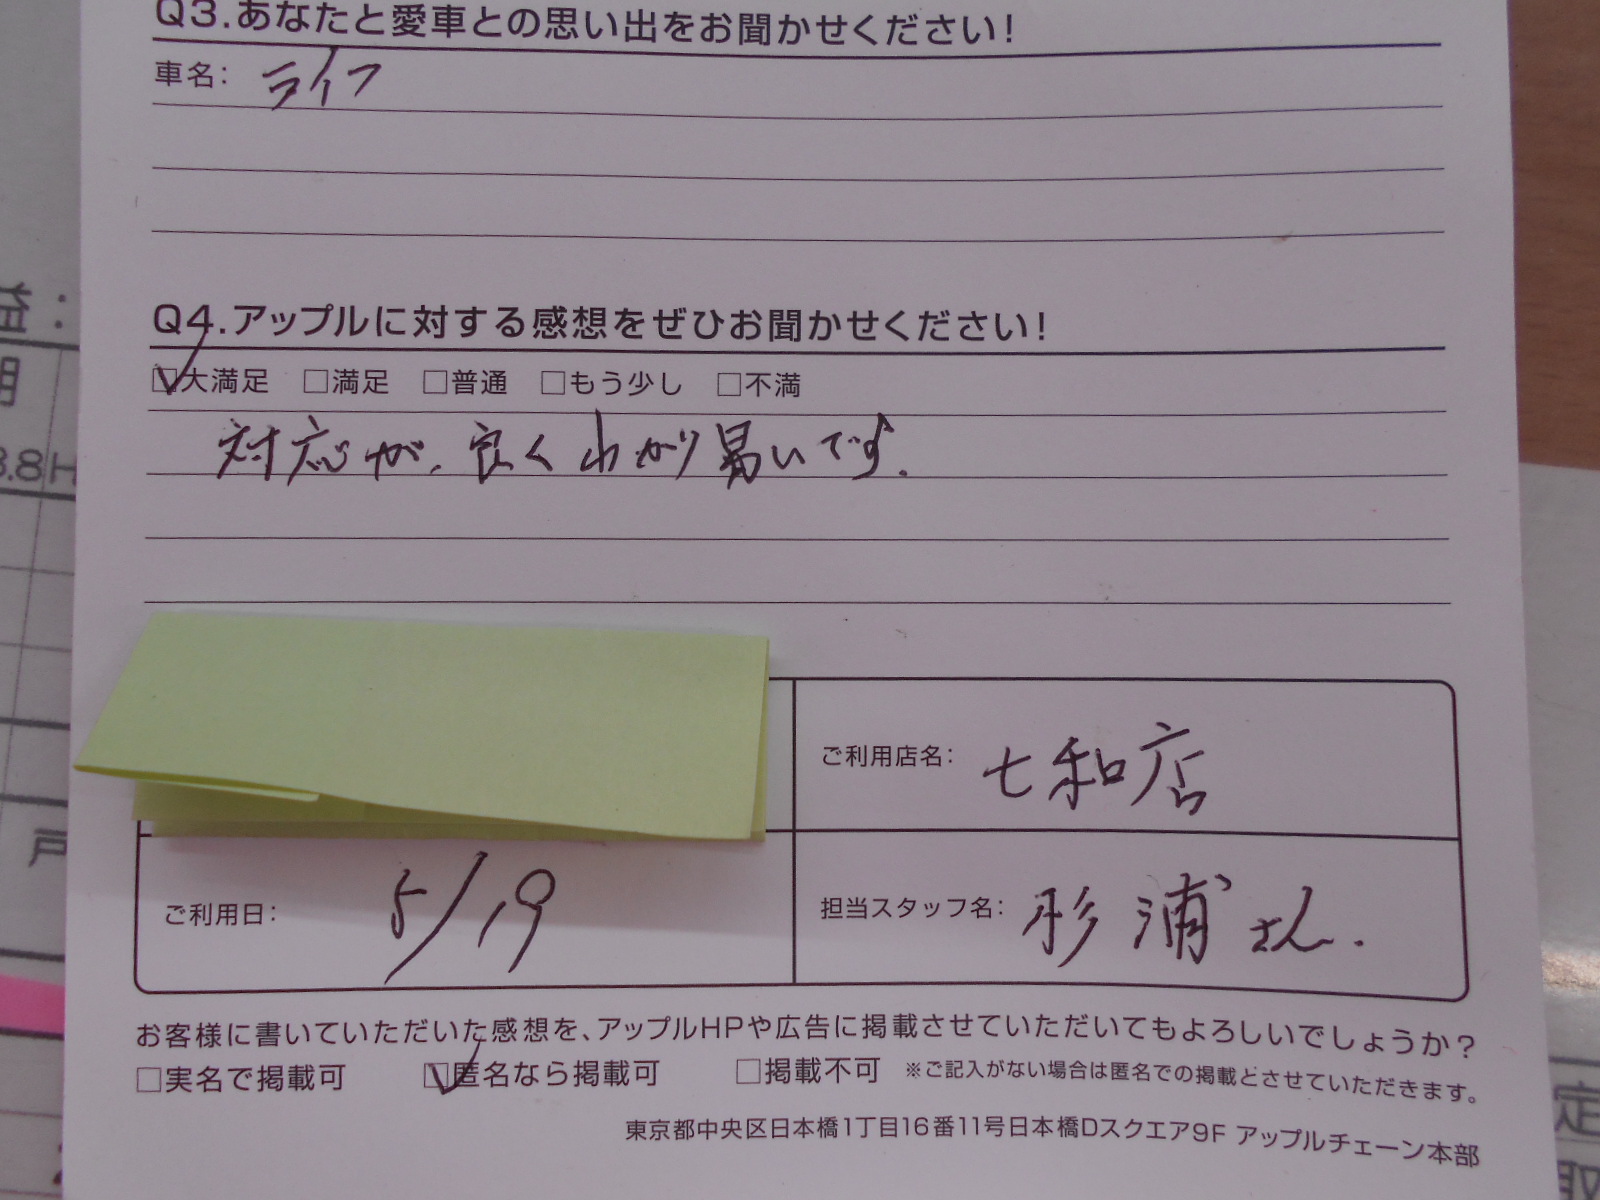 Q3.あなたと愛車との思い出をお聞かせください!
車名: ライフ
Q4.アップルに対する感想をぜひお聞かせください!
☑大満足 □満足 □普通 □もう少し □不満
対応が、良くわかり易いです.
ご利用店名: 七和店
ご利用日: 5/19
担当スタッフ名: 杉浦さん.
お客様に書いていただいた感想を、アップルHPや広告に掲載させていただいてもよろしいでしょうか?
□実名で掲載可 ☑匿名なら掲載可 □掲載不可 ※ご記入がない場合は匿名での掲載とさせていただきます。
東京都中央区日本橋1丁目16番11号日本橋Dスクエア9F アップルチェーン本部
益:
3.8H
戸
定
取